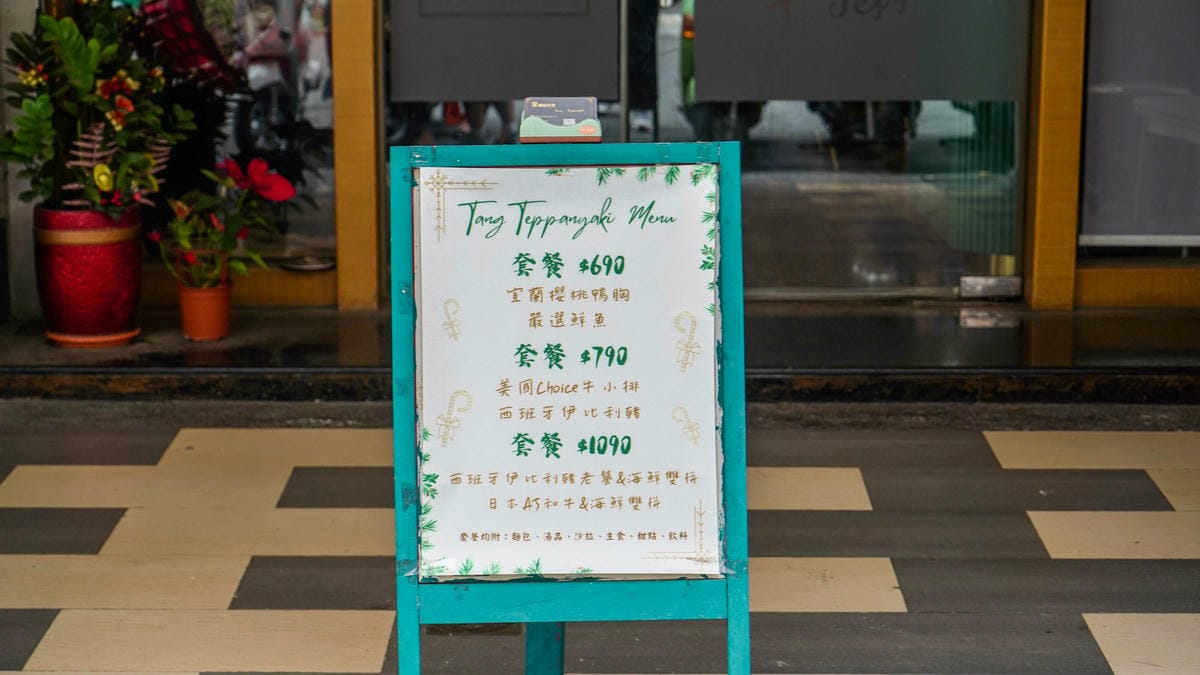 Tang Teppanyaki Menu
套餐 $690
宜蘭櫻桃鴨胸
嚴選鮮魚
套餐 $790
美國Choice牛小排
西班牙伊比利豬
套餐 $1090
西班牙伊比利豬老饕&海鮮雙拼
日本A5和牛&海鮮雙拼
套餐均附：麵包、湯品、沙拉、主食、甜點、飲料